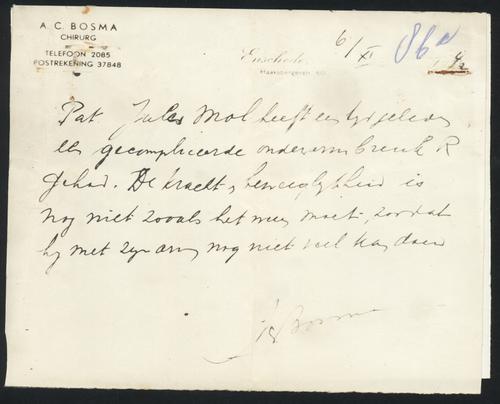 A. C. BOSMA
CHIRURG
TELEFOON 2085
POSTREKENING 37848
Enschede, 6/XI
Haaksbergerstr. 60
86a
Pat Jules Mol heeft een tyd geleden
een gecompliceerde onderarm breuk R
gehad. De kracht, beweeglykheid is
nog niet zooals het wezen moet, zoodat
hy met zyn arm nog niet veel kan doen
Bosma